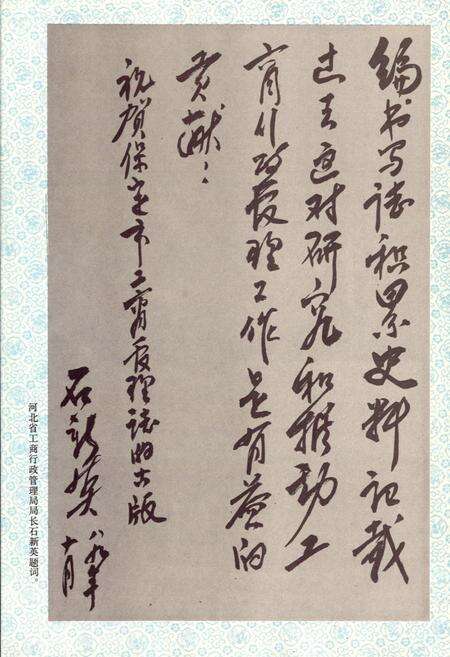 编书写志积累史料记载
过去这对研究和推动工
商行政管理工作是有益的
贡献：
祝贺保定市工商管理志的出版
石新英 八九年
十月
河北省工商行政管理局局长石新英题词。